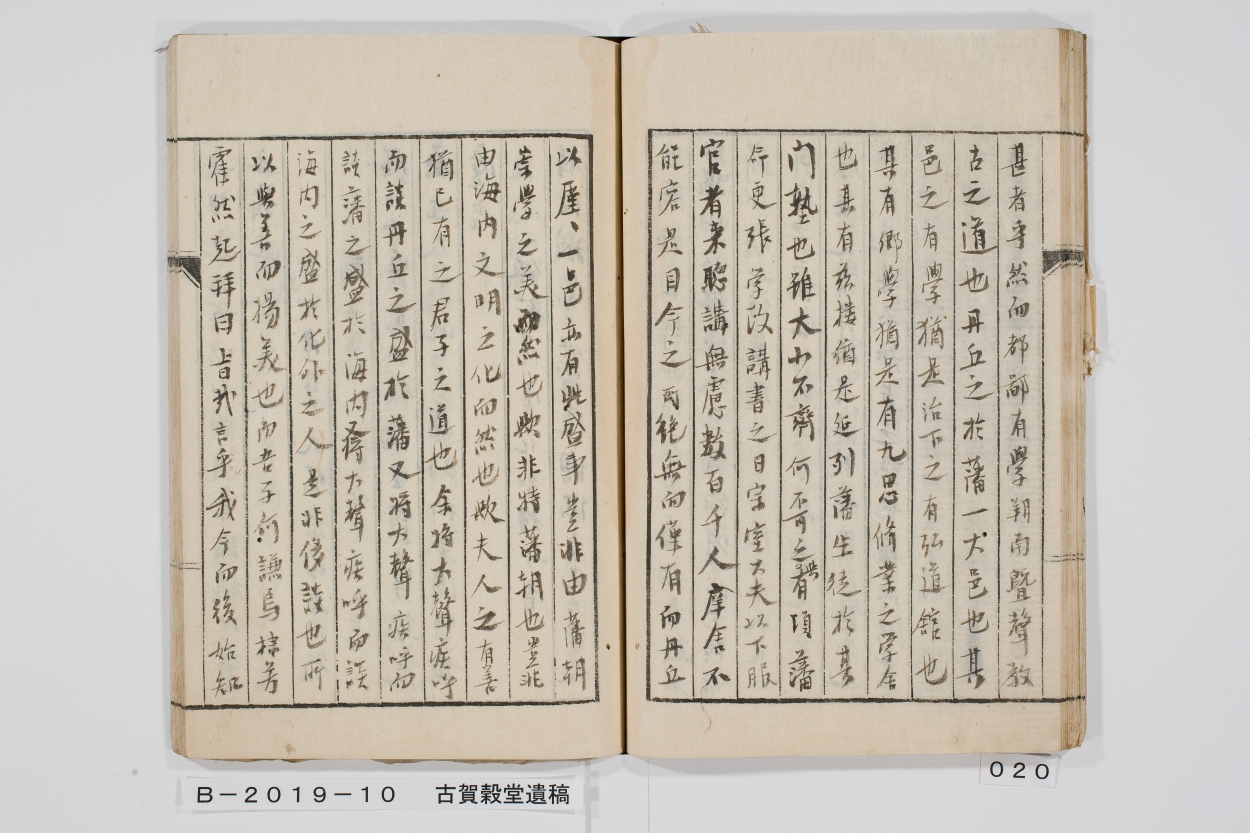 甚者乎然而都鄙有學朔南曁聲教
古之道也丹丘之於藩一大邑也其
邑之有學猶是治下之有弘道館也
其有鄉學猶是有九思脩業之学舎
也其有茲樓猶是延列藩生徒於其
門塾也雖大小不齊何不可之有頃藩
命更張学政講書之日宗室大夫以下服
官者来聽講無慮數百千人庠舎不
能容是目今之所絶無而僅有而丹丘
以厓、一邑亦有此盛事豈非由藩朝
崇學之美而然也歟非特藩朝也豈非
由海内文明之化而然也歟夫人之有善
猶己有之君子之道也余将大聲疾呼
而談丹丘之盛於藩又将大聲疾呼而
談藩之盛於海内又将大聲疾呼而談
海内之盛於化外之人是非侈談也所
以與善而揚美也而吾子何謙焉棣芳
霍然起拜曰旨哉言乎我今而後始知
B－2019－10 古賀穀堂遺稿
020